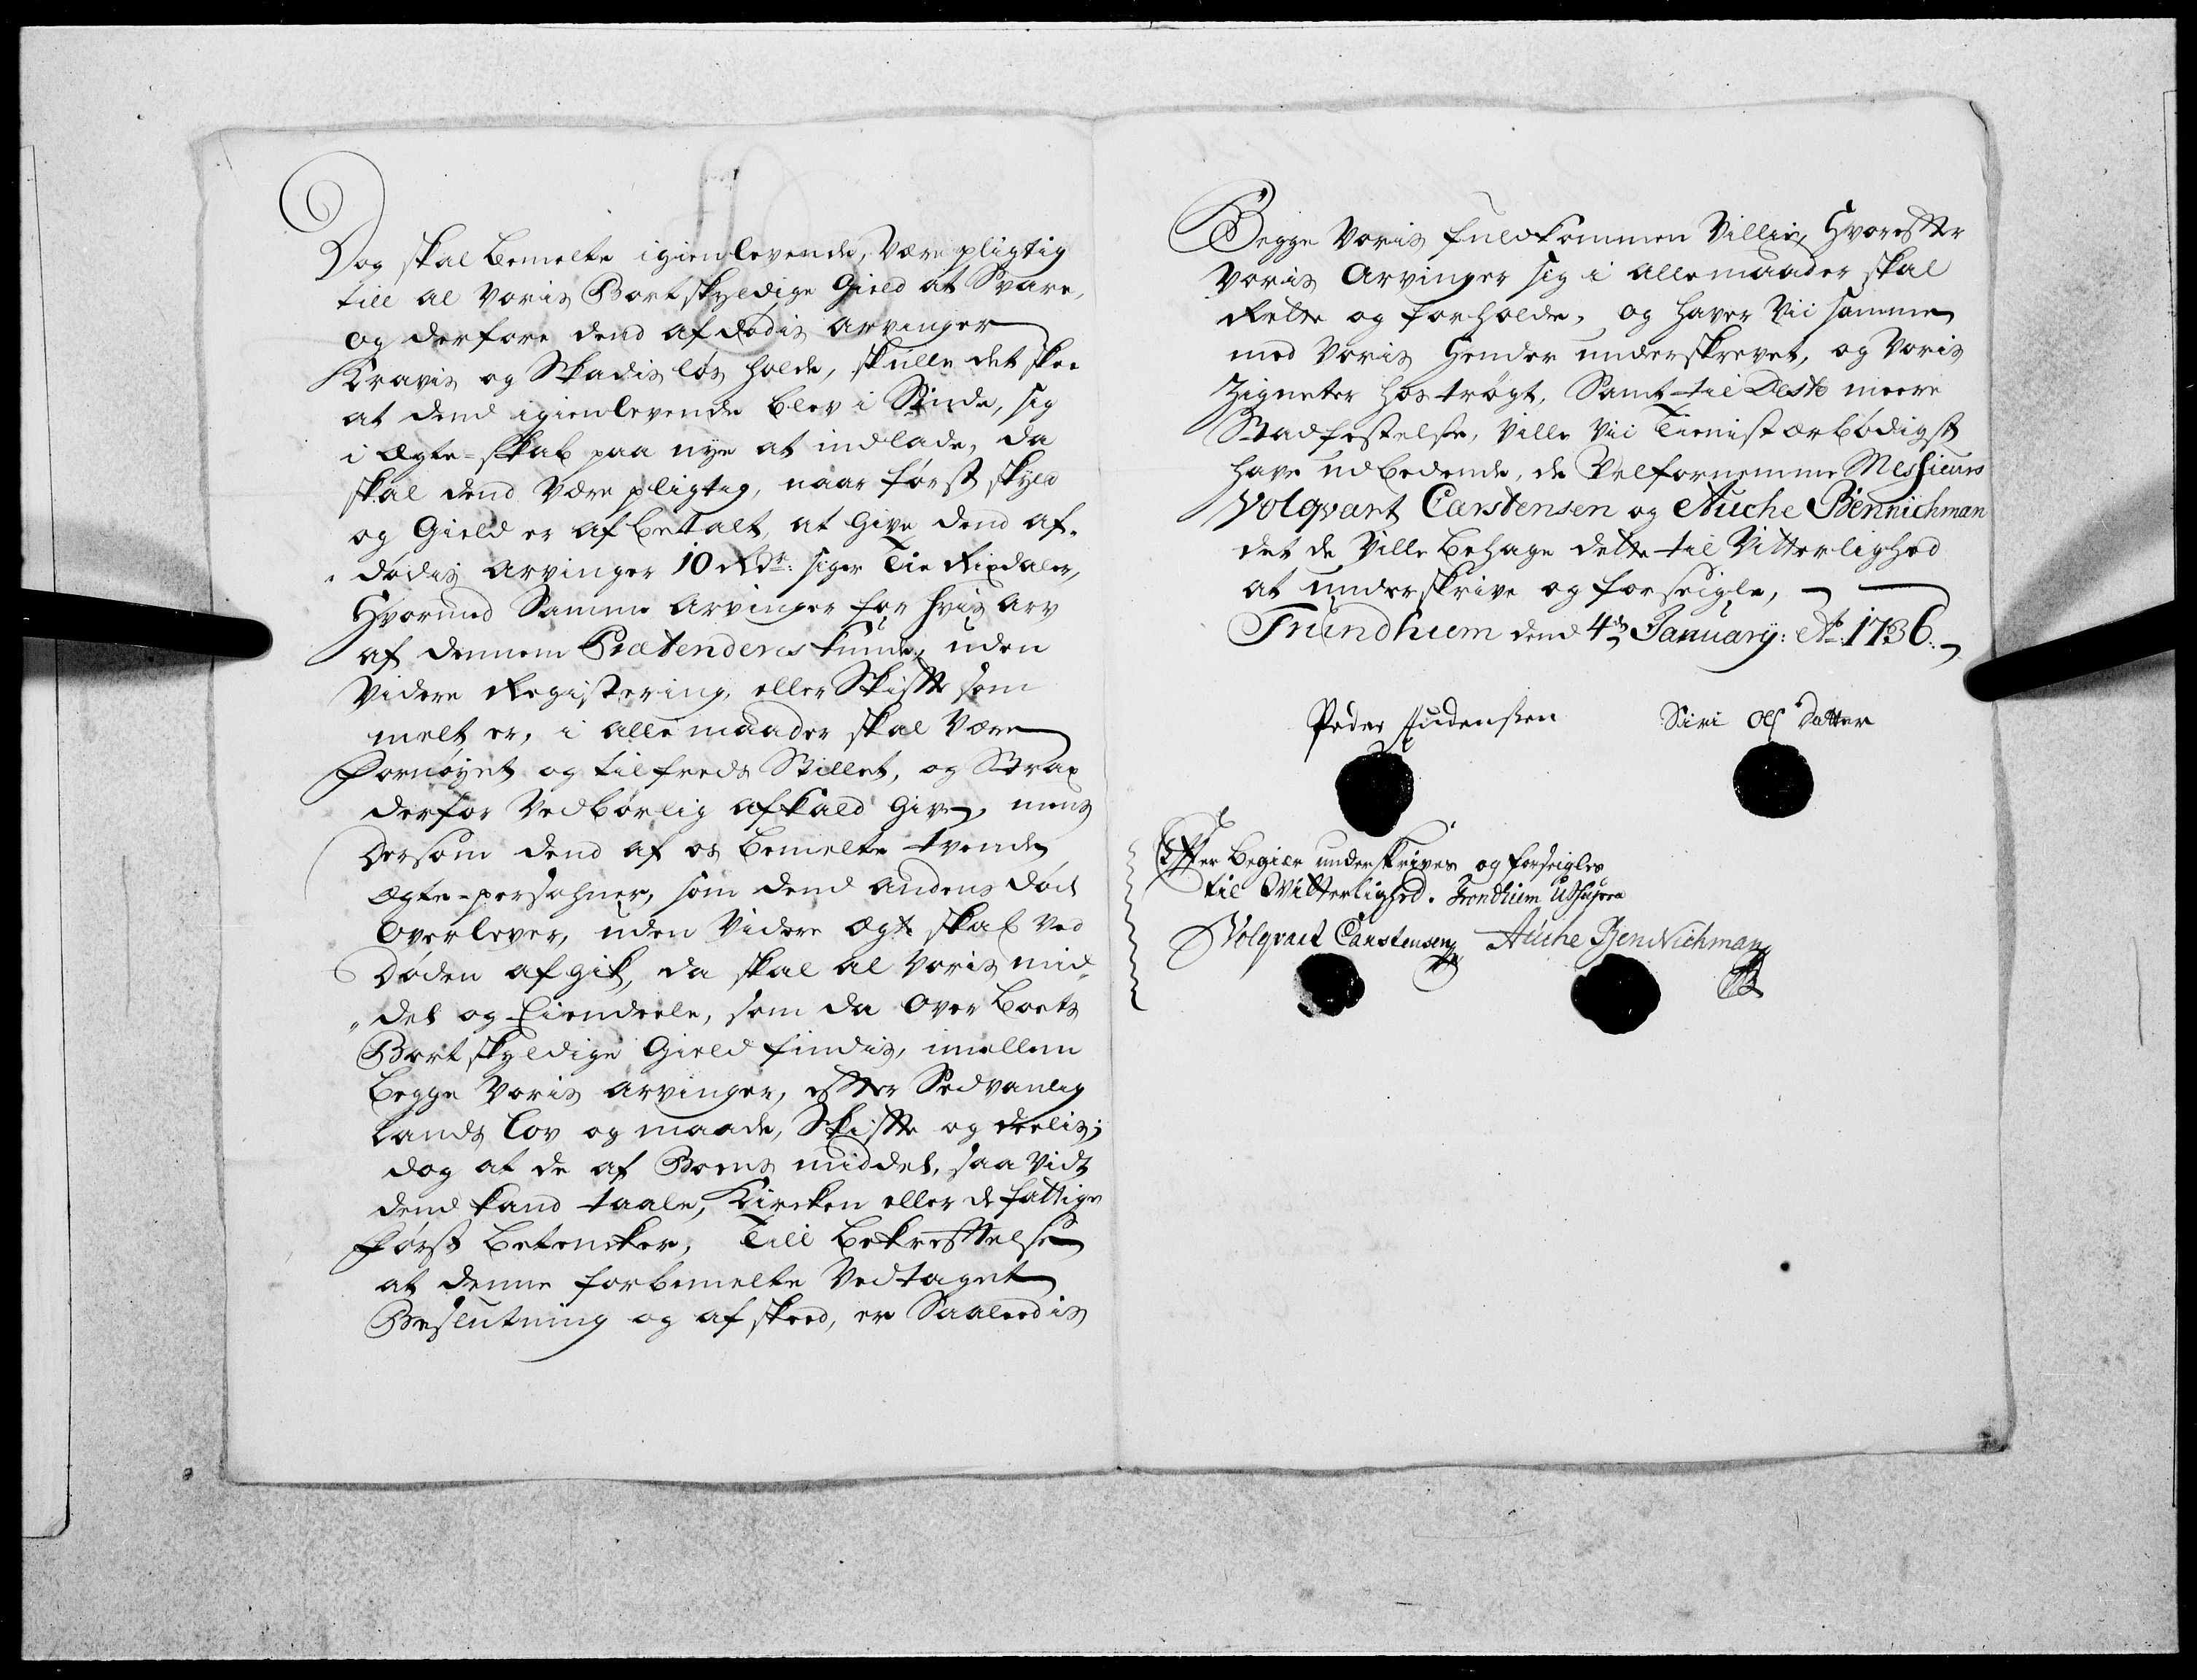 Dog skal bemelte igienlevende, være pligtig
till al voris Bortskyldige Gield at Svare,
og derfore dend afdødis arvinger
Kravis og Skadisløs holde, skulle det skee
at dend igienlevende blev i Sinde, sig
i Ægte-skab paa nye at indlade, da
skal dend være pligtig, naar først skyld
og Gield er afbetalt, at give dend af-
dødis arvinger 10 Rdr: siger Tie Rixdaler,
Hvormed Samme Arvinger for hvis Arv
af dennem Prætenderes kunde, uden
videre Registering, eller Skifte som
melt er, i alle maader skal være
Fornøyet og tilfreds Stillet, og Strax
derfor vedbørlig afkald give, mens
Dersom dend af os bemelte tvende
Ægte-persohner, som dend andens død
overlever, uden videre Ægteskab ved
Døden afgik, da skal al voris mid-
del og Eiendeele, som da over boets
Bortskyldige Gield findis, imellem
begge voris arvinger, efter Sedvanlig
Lands Lov og maade, Skifte og deelis;
dog at de af Boens middel, saa vidt
dend kand taale, Kircken eller de fattige
Først betencker, Till bekreftelse
at denne forbemelte vedtagne
Beslutning og afskeed, er Saaleedis
Begge voris fuldkommen Villie, Hvorefter
voris Arvinger sig i allemaader skal
Rette og forholde, og haver vii samme
med voris Hender underskrevet, og voris
Zigneter hostrøgt, Samt til Desto meere
Stadfestelse, ville vii Tienistærbødigst
have udbedende, de Velfornemme Messieurs
Volqvart Carstensen og Auche Bennichman
det de ville behage dette til Vitterlighed
at underskrive og forseigle,
Trundhiem dend 4de January: Ao 1736.
Peder Judensen Siri Ols datter
Efter Begier underskrives og forseigles
til Witterlighed. Trondhiem ut supra
Volqvart Carstensen Auche Bennichman